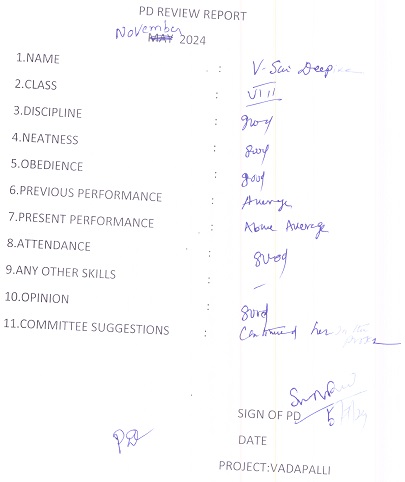 PD REVIEW REPORT
November
MAY 2024
1.NAME : V-Sai Deepika
2.CLASS : VIII
3.DISCIPLINE : good
4.NEATNESS : good
5.OBEDIENCE : good
6.PREVIOUS PERFORMANCE : Average
7.PRESENT PERFORMANCE : Above Average
8.ATTENDANCE : good
9.ANY OTHER SKILLS : –
10.OPINION : good
11.COMMITTEE SUGGESTIONS : Continued her in the
SIGN OF PD
PD
DATE
PROJECT:VADAPALLI